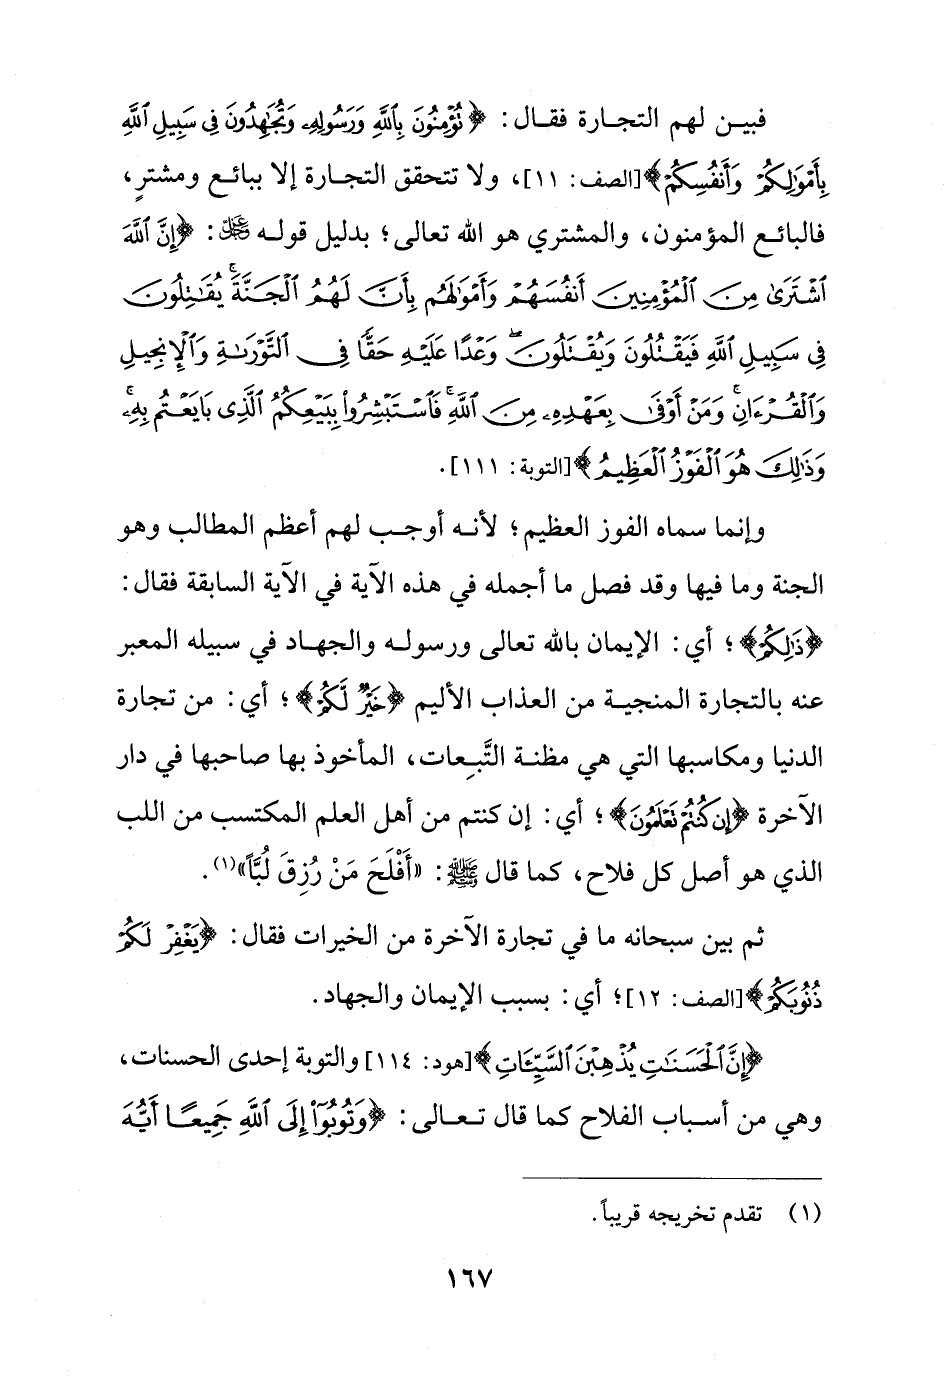 فبين لهم التجارة فقال: ﴿تُؤْمِنُونَ بِاللَّهِ وَرَسُولِهِ وَتُجَاهِدُونَ فِي سَبِيلِ اللَّهِ
بِأَمْوَالِكُمْ وَأَنفُسِكُمْ﴾[الصف: ١١]، ولا تتحقق التجارة إلا ببائع ومشترٍ،
فالبائع المؤمنون، والمشتري هو الله تعالى؛ بدليل قوله ﷻ: ﴿إِنَّ اللَّهَ
اشْتَرَىٰ مِنَ الْمُؤْمِنِينَ أَنفُسَهُمْ وَأَمْوَالَهُم بِأَنَّ لَهُمُ الْجَنَّةَ ۚ يُقَاتِلُونَ
فِي سَبِيلِ اللَّهِ فَيَقْتُلُونَ وَيُقْتَلُونَ ۖ وَعْدًا عَلَيْهِ حَقًّا فِي التَّوْرَاةِ وَالْإِنجِيلِ
وَالْقُرْءَانِ ۚ وَمَنْ أَوْفَىٰ بِعَهْدِهِ مِنَ اللَّهِ ۚ فَاسْتَبْشِرُوا بِبَيْعِكُمُ الَّذِي بَايَعْتُم بِهِ ۚ
وَذَٰلِكَ هُوَ الْفَوْزُ الْعَظِيمُ﴾[التوبة: ١١١].
وإنما سماه الفوز العظيم؛ لأنه أوجب لهم أعظم المطالب وهو
الجنة وما فيها وقد فصل ما أجمله في هذه الآية في الآية السابقة فقال:
﴿ذَٰلِكُمْ﴾؛ أي: الإيمان بالله تعالى ورسوله والجهاد في سبيله المعبر
عنه بالتجارة المنجية من العذاب الأليم ﴿خَيْرٌ لَّكُمْ﴾؛ أي: من تجارة
الدنيا ومكاسبها التي هي مظنة التَّبِعات، المأخوذ بها صاحبها في دار
الآخرة ﴿إِن كُنتُمْ تَعْلَمُونَ﴾؛ أي: إن كنتم من أهل العلم المكتسب من اللب
الذي هو أصل كل فلاح، كما قال ﷺ: «أَفْلَحَ مَنْ رُزِقَ لُبّاً»(١).
ثم بين سبحانه ما في تجارة الآخرة من الخيرات فقال: ﴿يَغْفِرْ لَكُمْ
ذُنُوبَكُمْ﴾[الصف: ١٢]؛ أي: بسبب الإيمان والجهاد.
﴿إِنَّ الْحَسَنَاتِ يُذْهِبْنَ السَّيِّئَاتِ﴾[هود: ١١٤] والتوبة إحدى الحسنات،
وهي من أسباب الفلاح كما قال تعالى: ﴿وَتُوبُوا إِلَى اللَّهِ جَمِيعًا أَيُّهَ
(١) تقدم تخريجه قريباً.
١٦٧